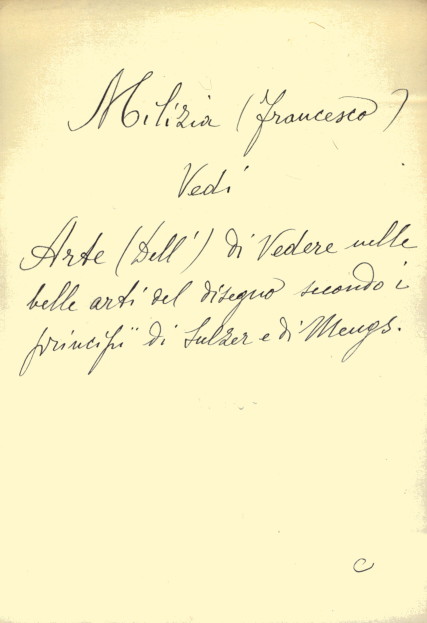 Milizia (Francesco)
Vedi
Arte (Dell') di Vedere nelle
belle arti del disegno secondo i
principii di Sulzer e di Mengs.
C